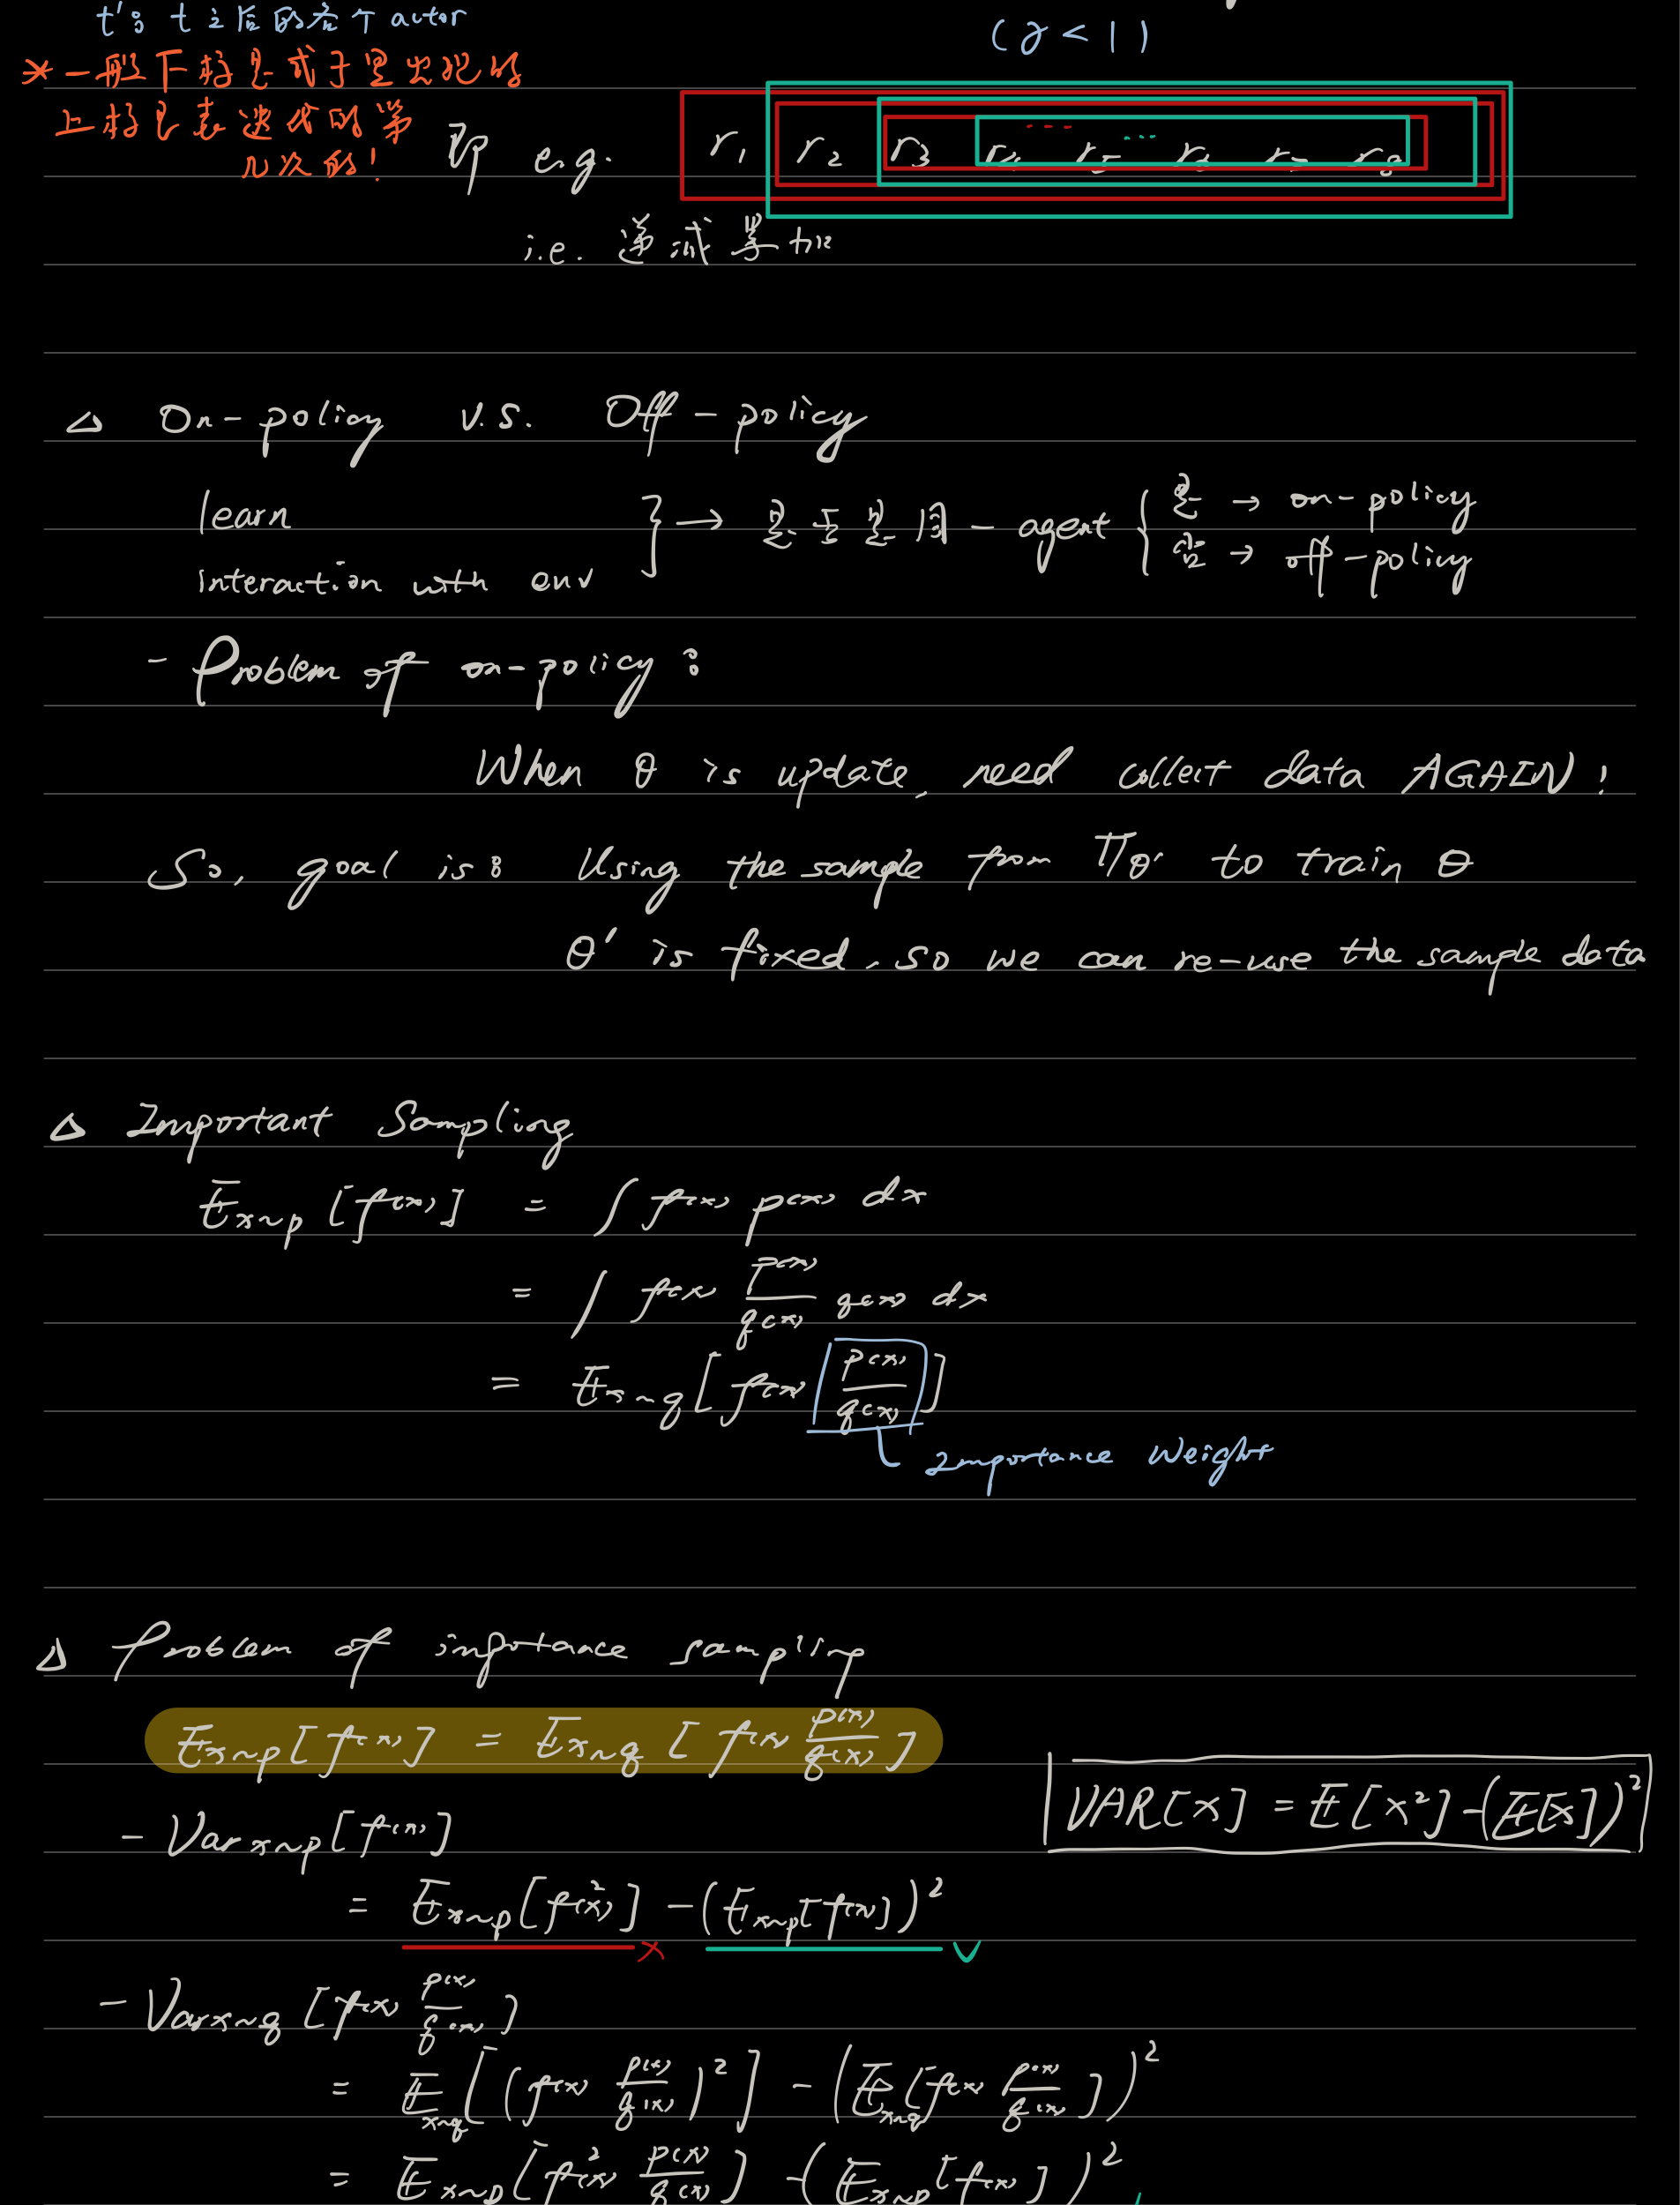 t': t之后的各个actor
(γ<1)
*一般下标是式子里出现的
上标是表迭代的第
几次的!
即 e.g. r₁ r₂ r₃ r₄ r₅ r₆ r₇ r₈
i.e. 递减累加
△ On-policy V.S. Off-policy
learn
interaction with env } → 是不是同一agent { 是 → on-policy
否 → off-policy
- Problem of on-policy:
When θ is update, need collect data AGAIN!
So, goal is: Using the sample from πθ' to train θ
θ' is fixed, so we can re-use the sample data
△ Important Sampling
E_{x~p}[f(x)] = ∫ f(x) p(x) dx
= ∫ f(x) p(x)/q(x) q(x) dx
= E_{x~q}[f(x) p(x)/q(x)]
Importance Weight
△ Problem of importance sampling
E_{x~p}[f(x)] = E_{x~q}[f(x) p(x)/q(x)]
VAR[X] = E[X²]-(E[X])²
- Var_{x~p}[f(x)]
= E_{x~p}[f(x)²] - (E_{x~p}[f(x)])²
- Var_{x~q}[f(x) p(x)/q(x)]
= E_{x~q}[(f(x) p(x)/q(x))²] - (E_{x~q}[f(x) p(x)/q(x)])²
= E_{x~p}[f(x)² p(x)/q(x)] - (E_{x~p}[f(x)])²